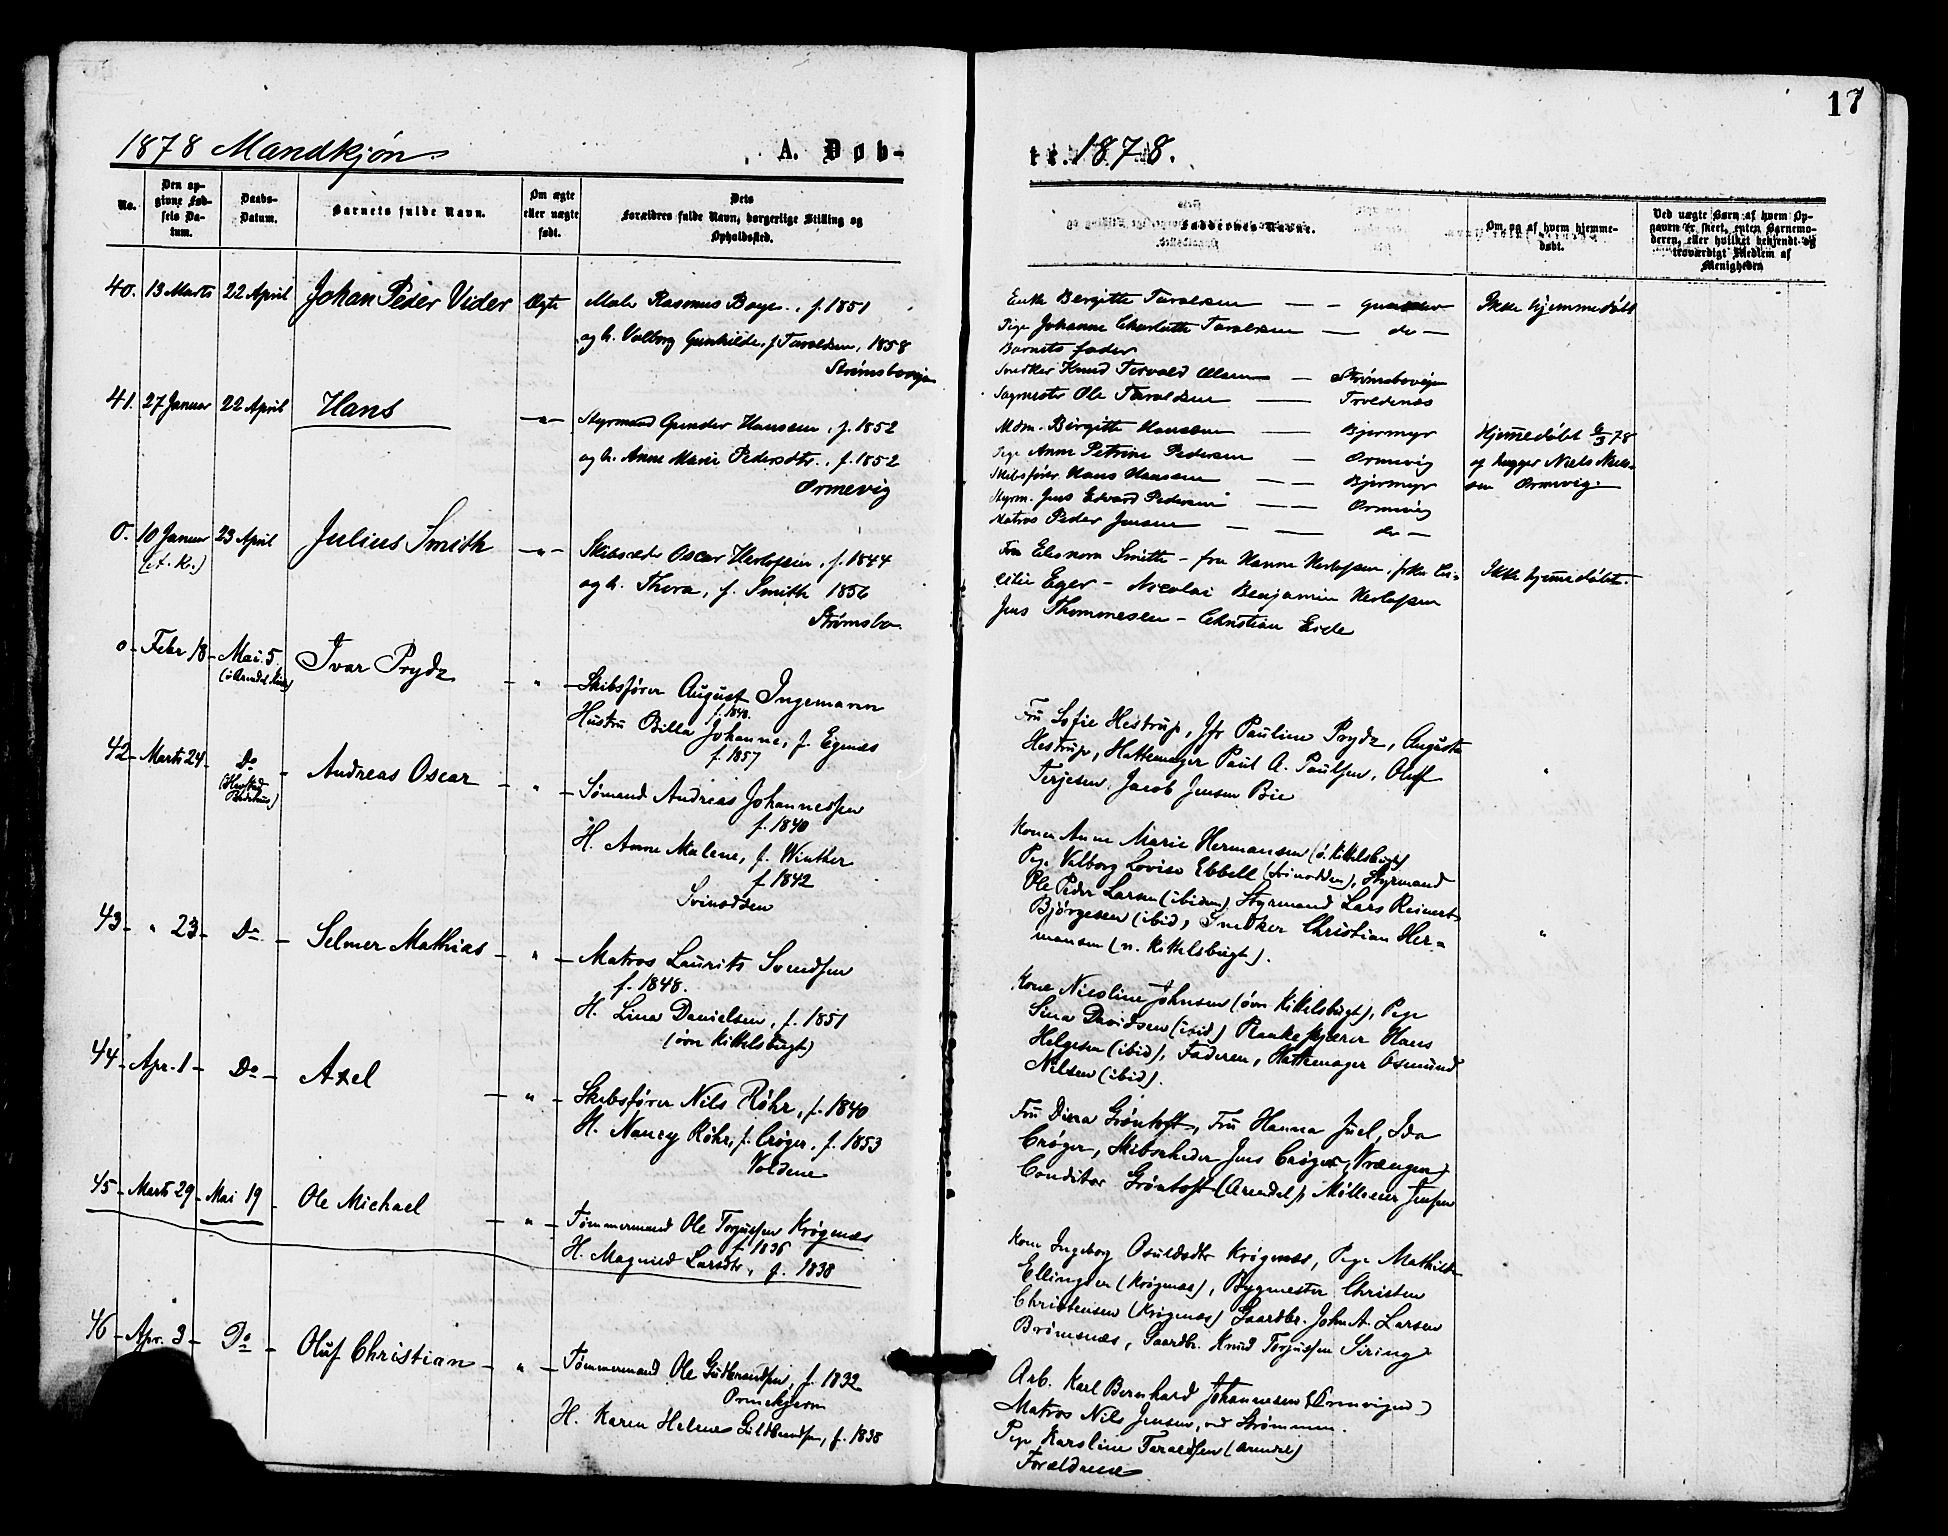 17
1878 Mandkjøn.
A. Døb-
te. 1878.
No.
Den op-
givne Fød-
sels Da-
tum.
Daabs-
Datum.
Barnets fulde Navn.
Om ægte
eller uægte
født.
Dets
Forældres fulde Navn, borgerlige Stilling og
Opholdssted.
Faddernes Navne.
Om og af hvem hjemme-
døbt.
Ved uægte Børn af hvem Op-
gaven er skeet, enten Barnemo-
deren, eller hvilket bekjendt og
troværdigt Medlem af
Menigheden
40. 13 Marts 22 April Johan Peder Vider Ægte
Maler Rasmus Boye, f. 1851
og h. Valborg Gunhilde, f Taraldsen, 1858
Strømsbovejen
Enke Bergitte Taraldsen
Pige Johanne Charlotte Taraldsen — do —
Barnets fader
Snedker Knud Tervald Olsen — Strømsbovejen
Sagmester Ole Taraldsen — Troldenæs
Ikke hjemmedøbt
41. 27 Januar 22 April Hans — " —
Styrmand Gunder Hanssen, f. 1852
og h. Anne Marie Pedersdtr., f. 1852
Ormevig
Mdm. Birgitte Hanssen — Bjermyr
Pige Anne Petrine Pedersen — Ormevig
Skibsfører Hans Hanssen — Bjermyr
Styrm. Jens Edvard Pedersen — Ormevig
Matros Peder Jensen — do —
Hjemmedøbt 6/3 78
af hugger Niels Niel-
sen Ormevig.
0. 10 Januar 23 April Julius Smith — " —
(A. K.)
Skibsreder Oscar Herlofsen, f. 1844
og h. Thora, f. Smith 1856
Strømsbo.
Fru Elenora Smith — fru Hanne Herlofsen, frkn Ce-
cilie Eger — Nicolai Benjamin Herlofsen
Jens Thommesen — Christian Eide
Ikke hjemmedøbt.
0 — Febr 18 — Mai. 5. Ivar Prydz — " —
(i Arendal Kirke)
Skibsfører August Ingemann
f. 1840.
Hustru Billa Johanne, f. Egenæs
f. 1857
Fru Sofie Hestrup, Jfr Pauline Prydz, Augusta
Hestrup, Hattemager Paul A. Paulsen, Oluf
Terjesen, Jacob Jensen Bie
"
42 — Marts 24 — Do — Andreas Oscar — " —
Sømand Andreas Johannessen
f. 1840
H. Anne Malene, f. Winther
f 1842
Svinodden
Kone Anne Marie Hermansen (ø. Kittelsbugt)
Pige Valborg Lovise Ebbell (Svinodden), Styrmand
Ole Peder Larsen (ibidem), Styrmand Lars Reinert
Bjørgesen (ibid), Snedker Christian Her-
mansen (n. Kittelsbugt).
43 — " 23 — Do — Selmer Mathias — " —
Matros Laurits Svendsen
f. 1848.
H. Lina Danielsen, f. 1851
(øvre Kittelsbugt)
"
Kone Nicoline Johnsen (øvre Kittelsbugt), Pige
Sina Davidsen (ibid) Plankekjører Hans
Helgesen (ibid), Faderen, Hattemager Osmund
Nilsen (ibid).
44 — Apr. 1 — Do — Axel — " —
Skibsfører Nils Röhr, f. 1840
H. Nancy Röhr, f. Crøger, f. 1853
Voldene
Fru Dina Gröntoft, Fru Hanna Juel, Ida
Crøger, Skibsreder Jens Crøger (Vrængen)
Conditor Gröntoft (Arendal), Mølleeier Jensen
45 — Marts 29 — Mai 19 — Ole Michael — " —
Tømmermand Ole Torjussen Krøgenæs
f. 1836
H. Magnild Larsdtr, f. 1838
Kone Ingeborg Osuldsdtr Krøgenæs, Pige Mathilde
Ellingsen (Krøgenæs), Bygmester Christen
Christensen (Krøgenæs) Gaardbr. John A. Larsen
Brømsnæs, Gaardbr. Knud Torjussen Sering
46 — Apr. 3 — Do — Oluf Christian — " —
Tømmermand Ole Guldbrandsen, f. 1832
H. Karen Helene Guldbrandsen, f. 1838
Arb. Karl Bernhard Johannesen (Ormevigen)
Matros Nils Jensen, ved Strømmen.
Pige Karoline Taraldsen (Arendal)
Forældrene